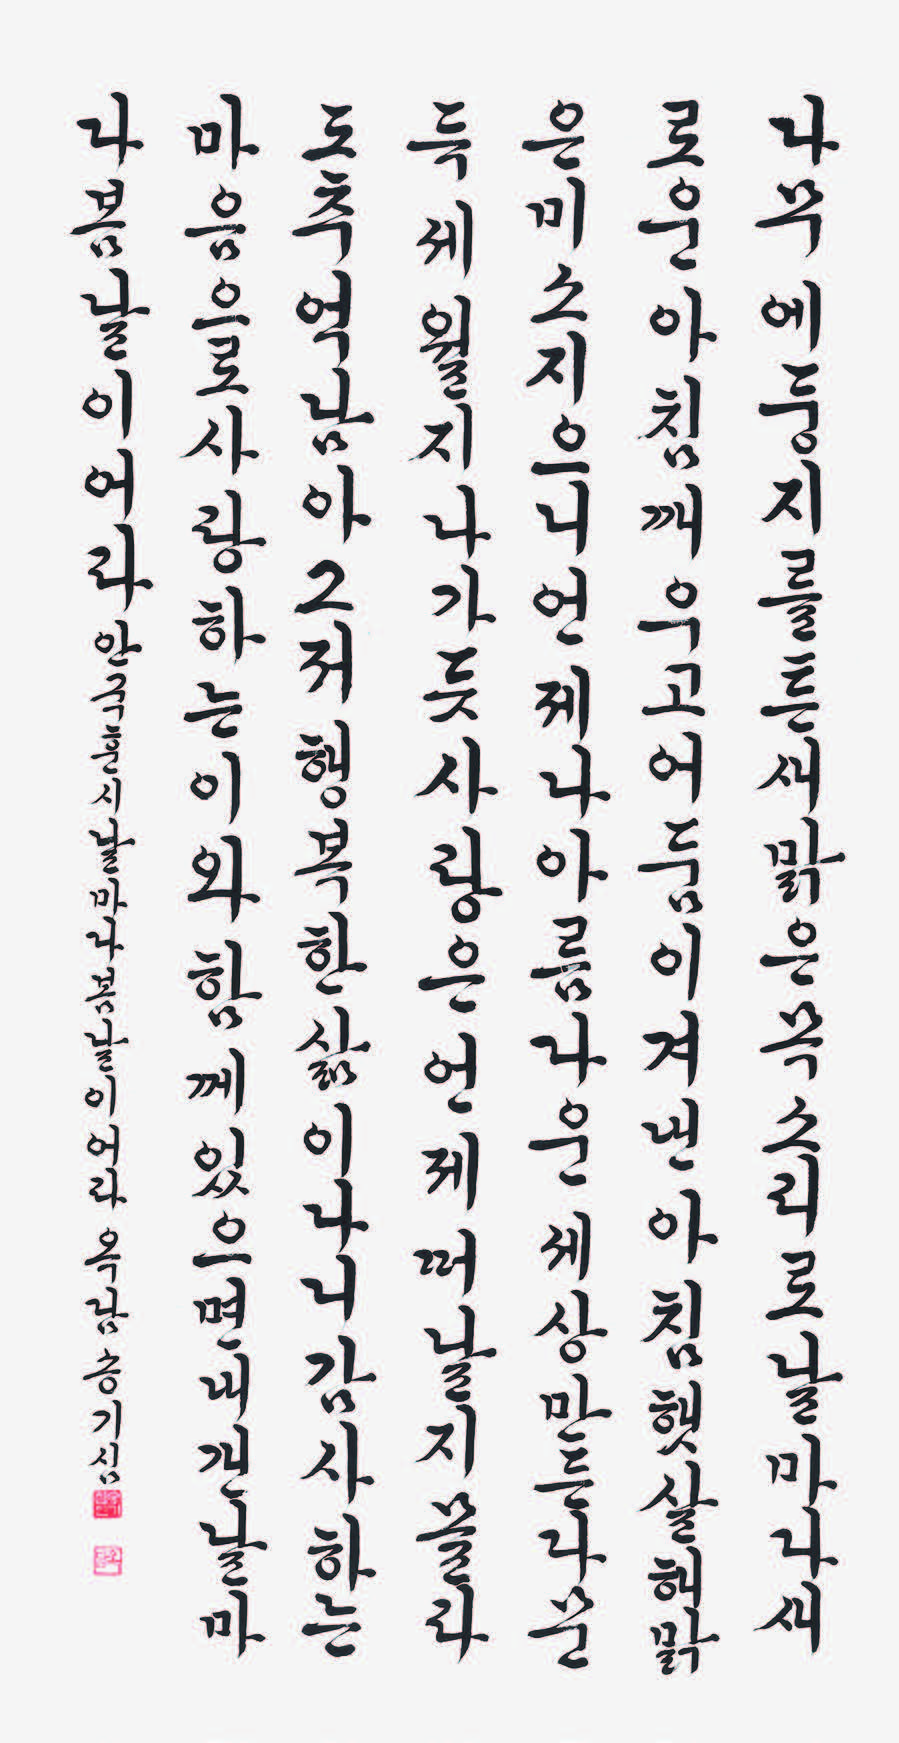 나무에둥지를튼새맑은목소리로날마다새
로운아침깨우고어둠이겨낸아침햇살해맑
은미소지으니언제나아름다운세상만든다문
득세월지나가듯사랑은언제떠날지몰라
도추억남아그저행복한삶이나니감사하는
마음으로사랑하는이와함께있으면내겐날마
다봄날이어라 안국훈시날마다봄날이어라 옥남송기심